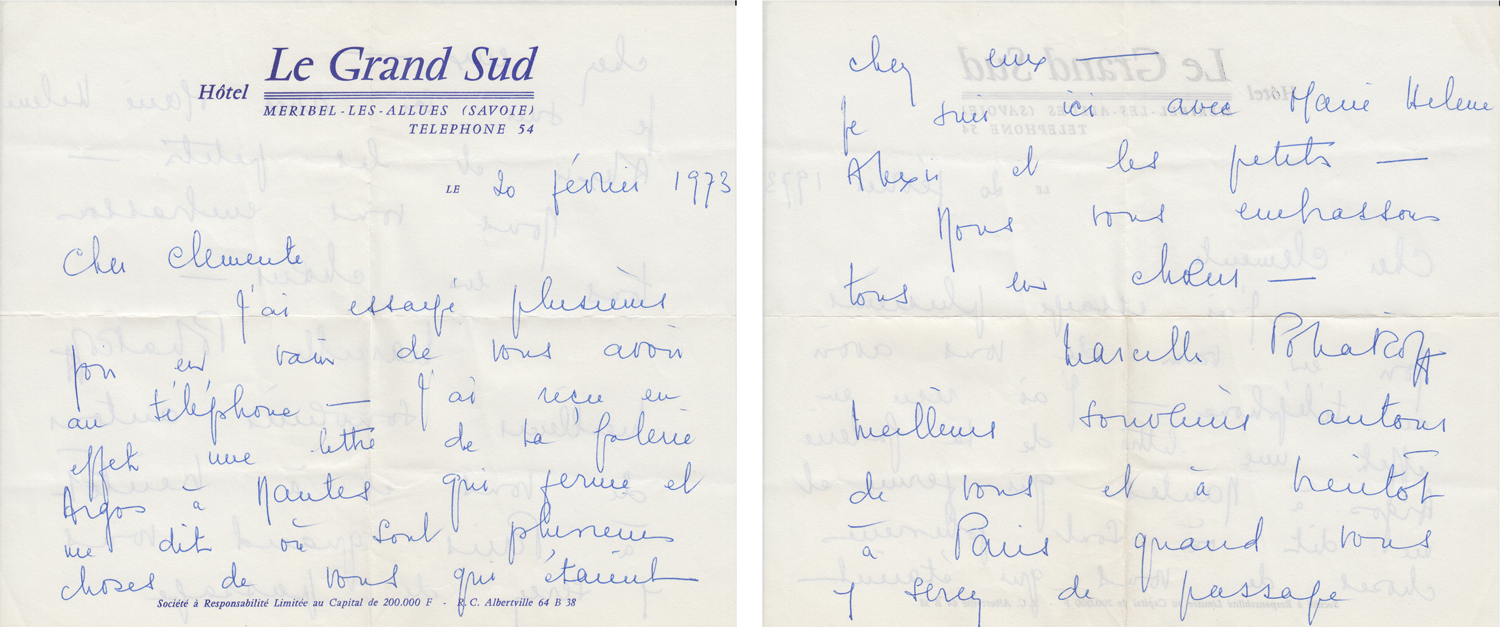 Hôtel Le Grand Sud
MERIBEL-LES-ALLUES (SAVOIE)
TELEPHONE 54
LE 20 février 1973
Cher Clemente
J'ai essayé plusieurs
fois en vain de vous avoir
au téléphone — J'ai reçu en
effet une lettre de la Galerie
Argos à Nantes qui ferme et
me dit où sont plusieurs
choses de vous qui étaient
Société à Responsabilité Limitée au Capital de 200.000 F - R. C. Albertville 64 B 38
chez eux —
Je suis ici avec Marie Helene
Alexis et les petits —
Nous vous embrassons
tous en chœur —
Marcelle Poliakoff
Meilleurs souvenirs autour
de vous et à bientôt
à Paris quand vous
y serez de passage